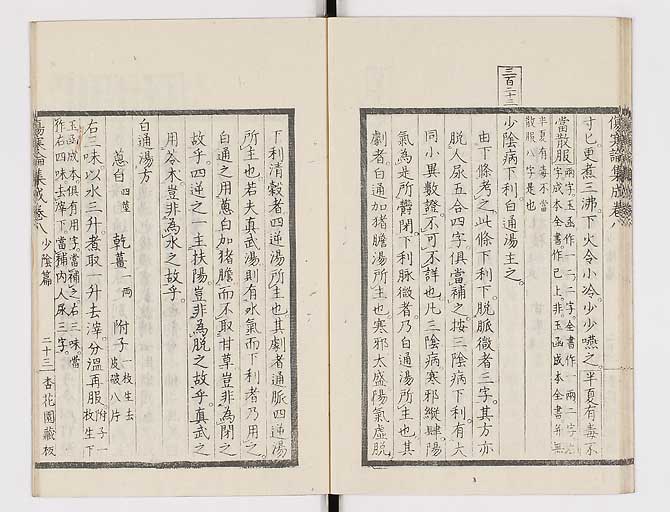 三百二十三
傷寒論集成卷八
寸匕更煮三沸下火令小冷少少嚥之半夏有毒不
當散服
兩字玉函作一二字全書作一兩二字
字成本全書作已上非玉函成本全書並無
半夏有毒不當
散服八字是也
少陰病下利白通湯主之
由下條考之此條下利下脫脈微者三字其方亦
脫人尿五合四字俱當補之按三陰病下利有大
同小異數證不可不詳也凡三陰病寒邪縱肆陽
氣為是所鬱閉下利脈微者乃白通湯所主也其
劇者白通加猪膽湯所主也寒邪太盛陽氣虛脫
下利清穀者四逆湯所主也其劇者通脈四逆湯
所主也若夫真武湯則有水氣而下利者乃用之
白通之用蔥白加猪膽而不取甘草豈非為閉之
故乎四逆之一主扶陽豈非為脫之故乎真武之
用苓朮豈非為水之故乎
白通湯方
蔥白四莖 乾薑一兩 附子一枚生去皮破八片
右三味以水三升煮取一升去滓分溫再服
附子一枚生下
玉函成本俱有用字當補之右三味當
作右四味去滓下當補內人尿三字
傷寒論集成卷八 少陰篇 二十三 杏花園藏板